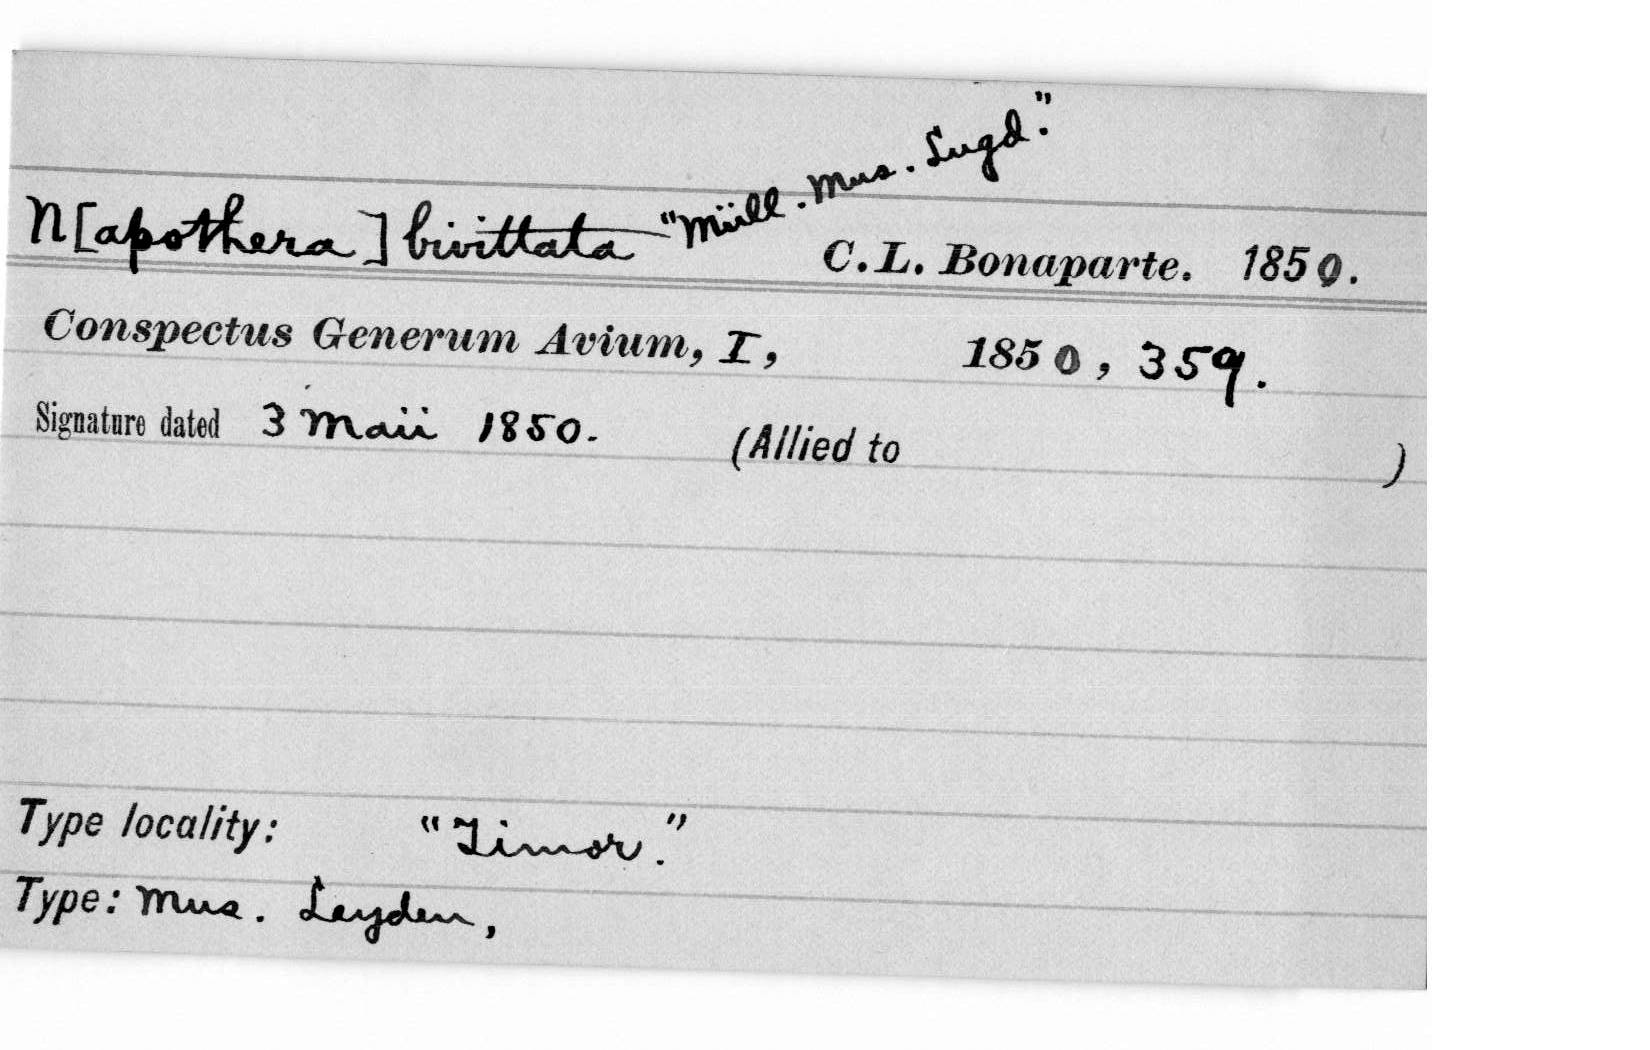 N[apothera] bivittata "Müll. Mus. Lugd." C.L. Bonaparte. 1850.
Conspectus Generum Avium, I, 1850, 359.
Signature dated 3 Maii 1850. (Allied to )
Type locality: "Timor."
Type: Mus. Leyden,